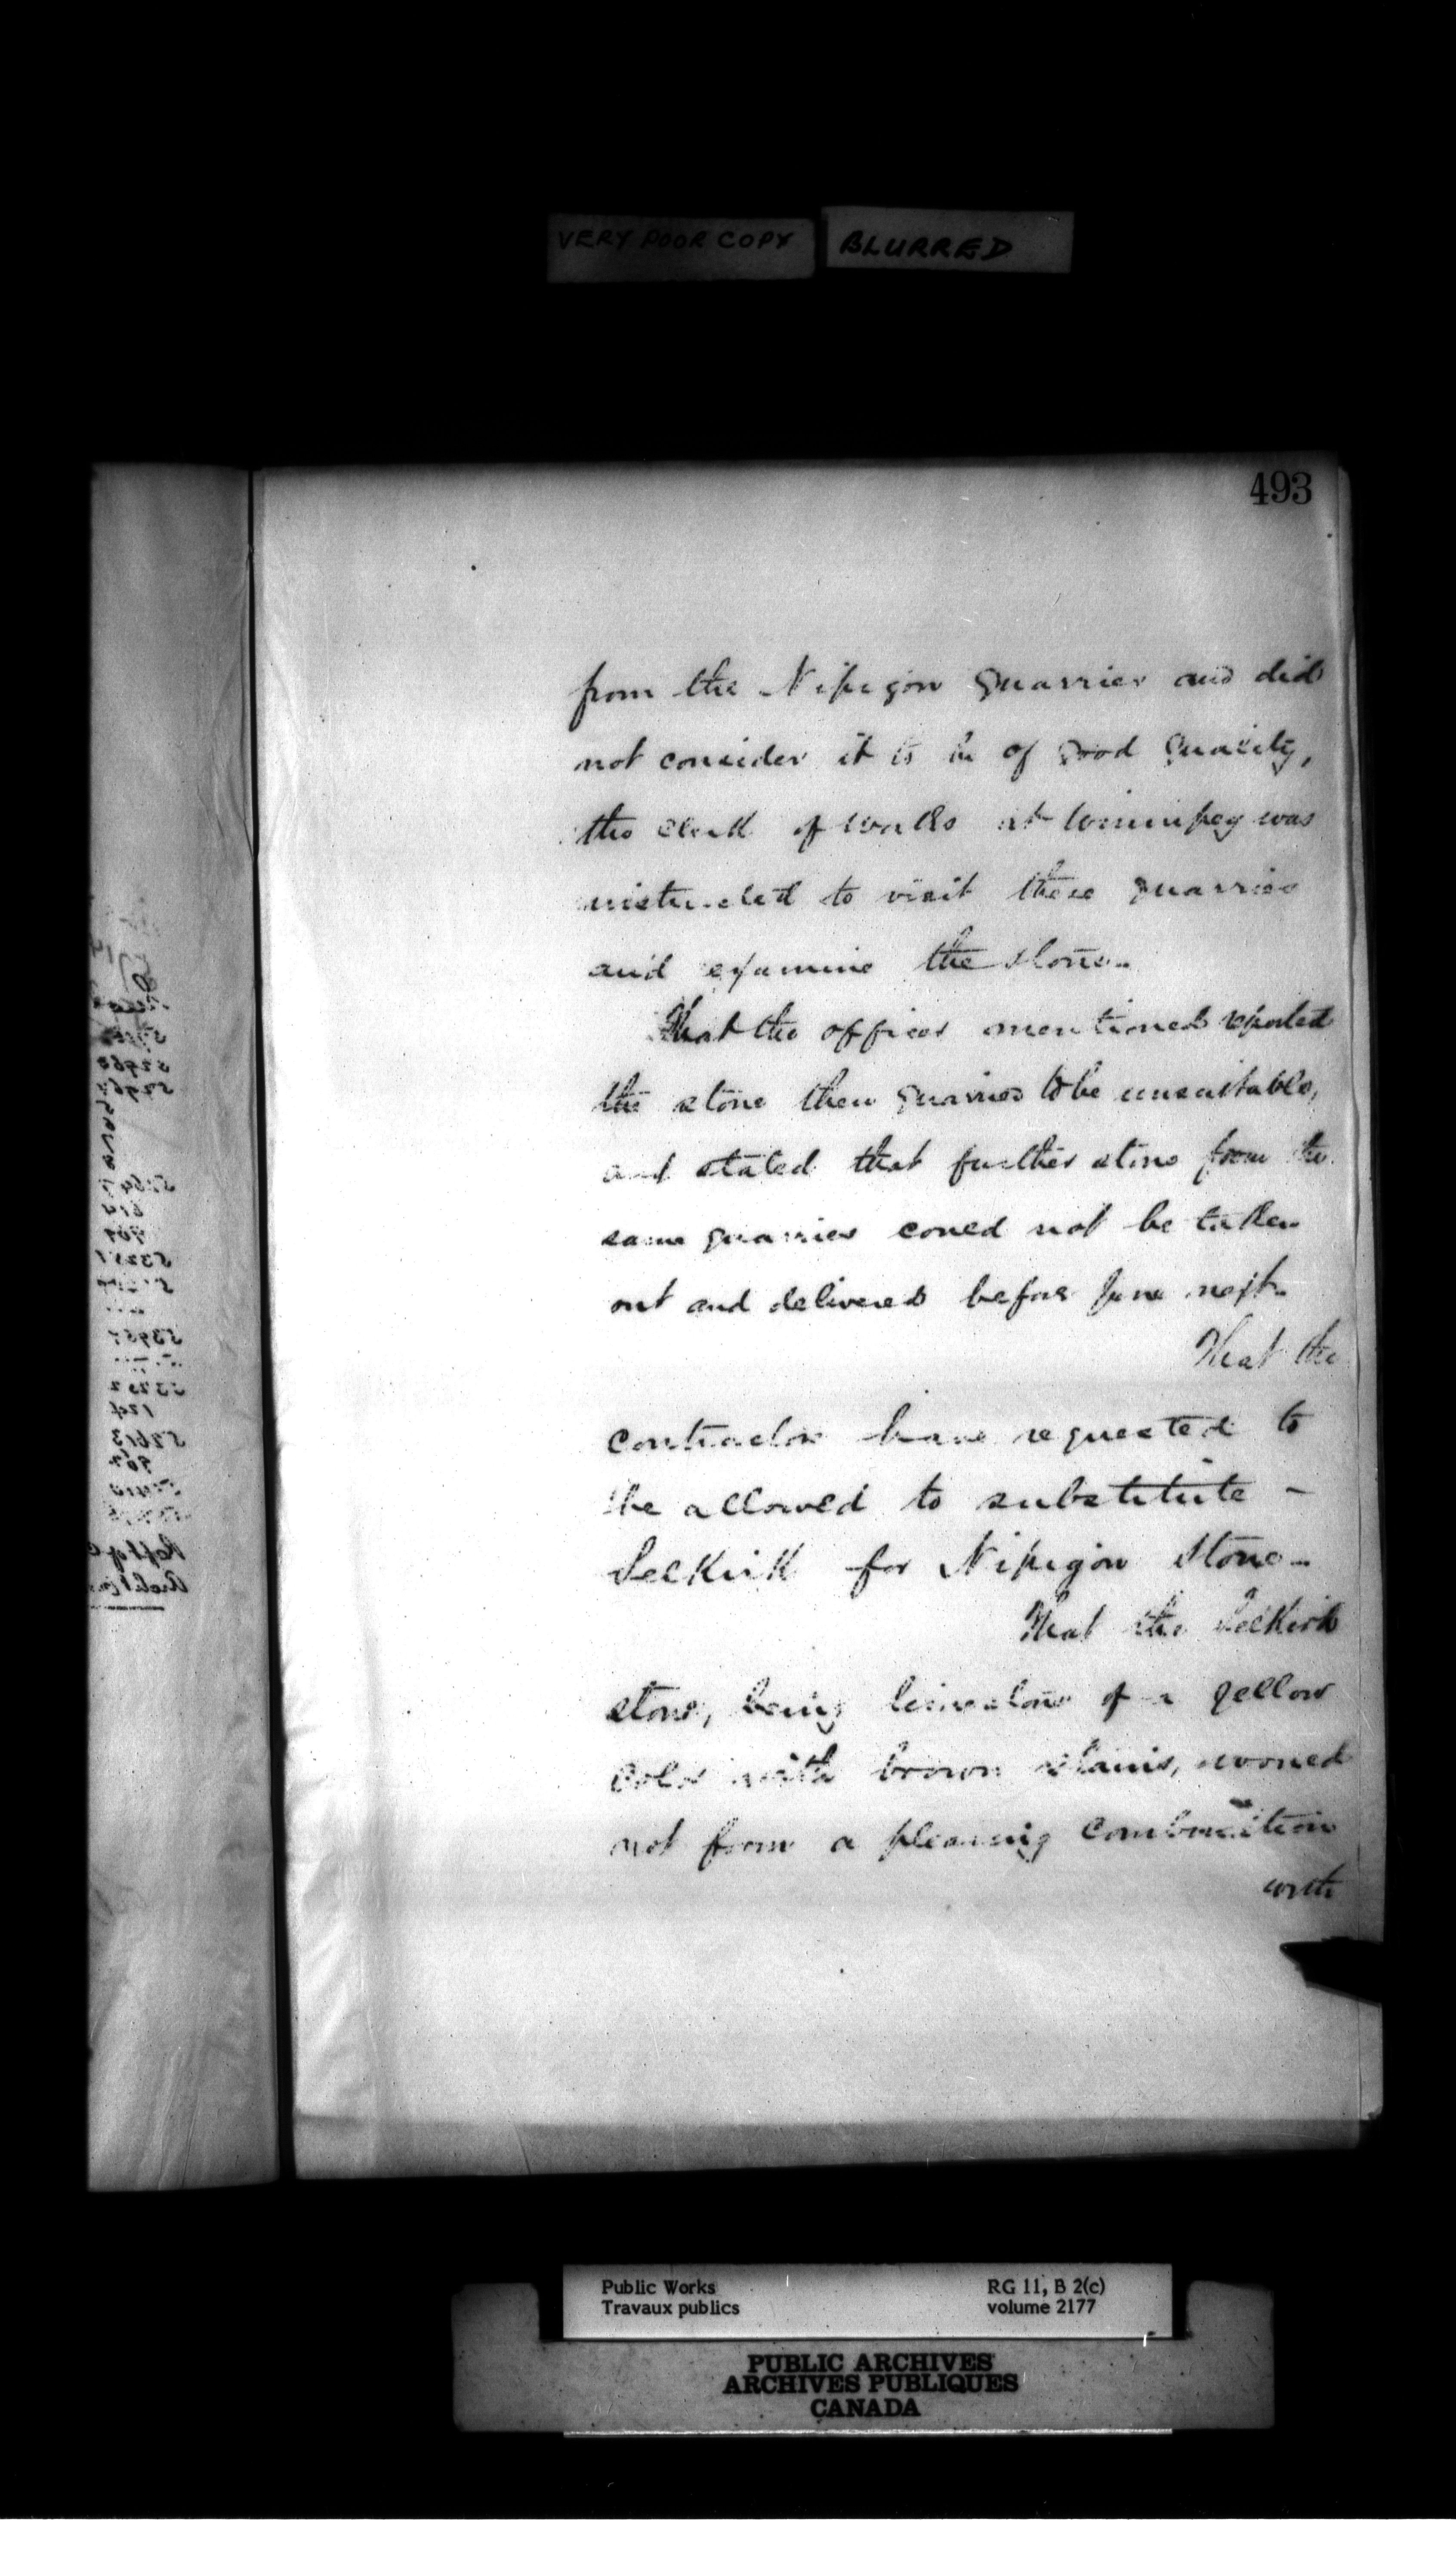 VERY POOR COPY BLURRED
493
from the Nipigon quarries and did
not consider it to be of good quality,
the Clerk of Works at Winnipeg was
instructed to visit these quarries
and examine the stone.
That the officer mentioned reported
the stone then quarried to be unsuitable,
and stated that further stone from the
same quarries could not be taken
out and delivered before June next.
That the
contractors have requested to
be allowed to substitute -
Selkirk for Nipigon Stone.
That the Selkirk
stone, being limestone of a yellow
color with brown stains, would
not form a pleasing combination
with
Public Works RG 11, B 2(c)
Travaux publics volume 2177
PUBLIC ARCHIVES
ARCHIVES PUBLIQUES
CANADA